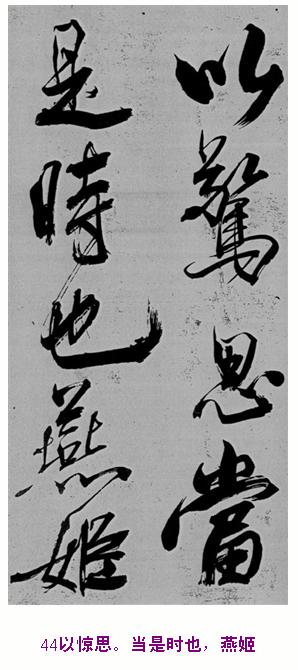 以驚思當
是時也燕姬
44以惊思。当是时也，燕姬